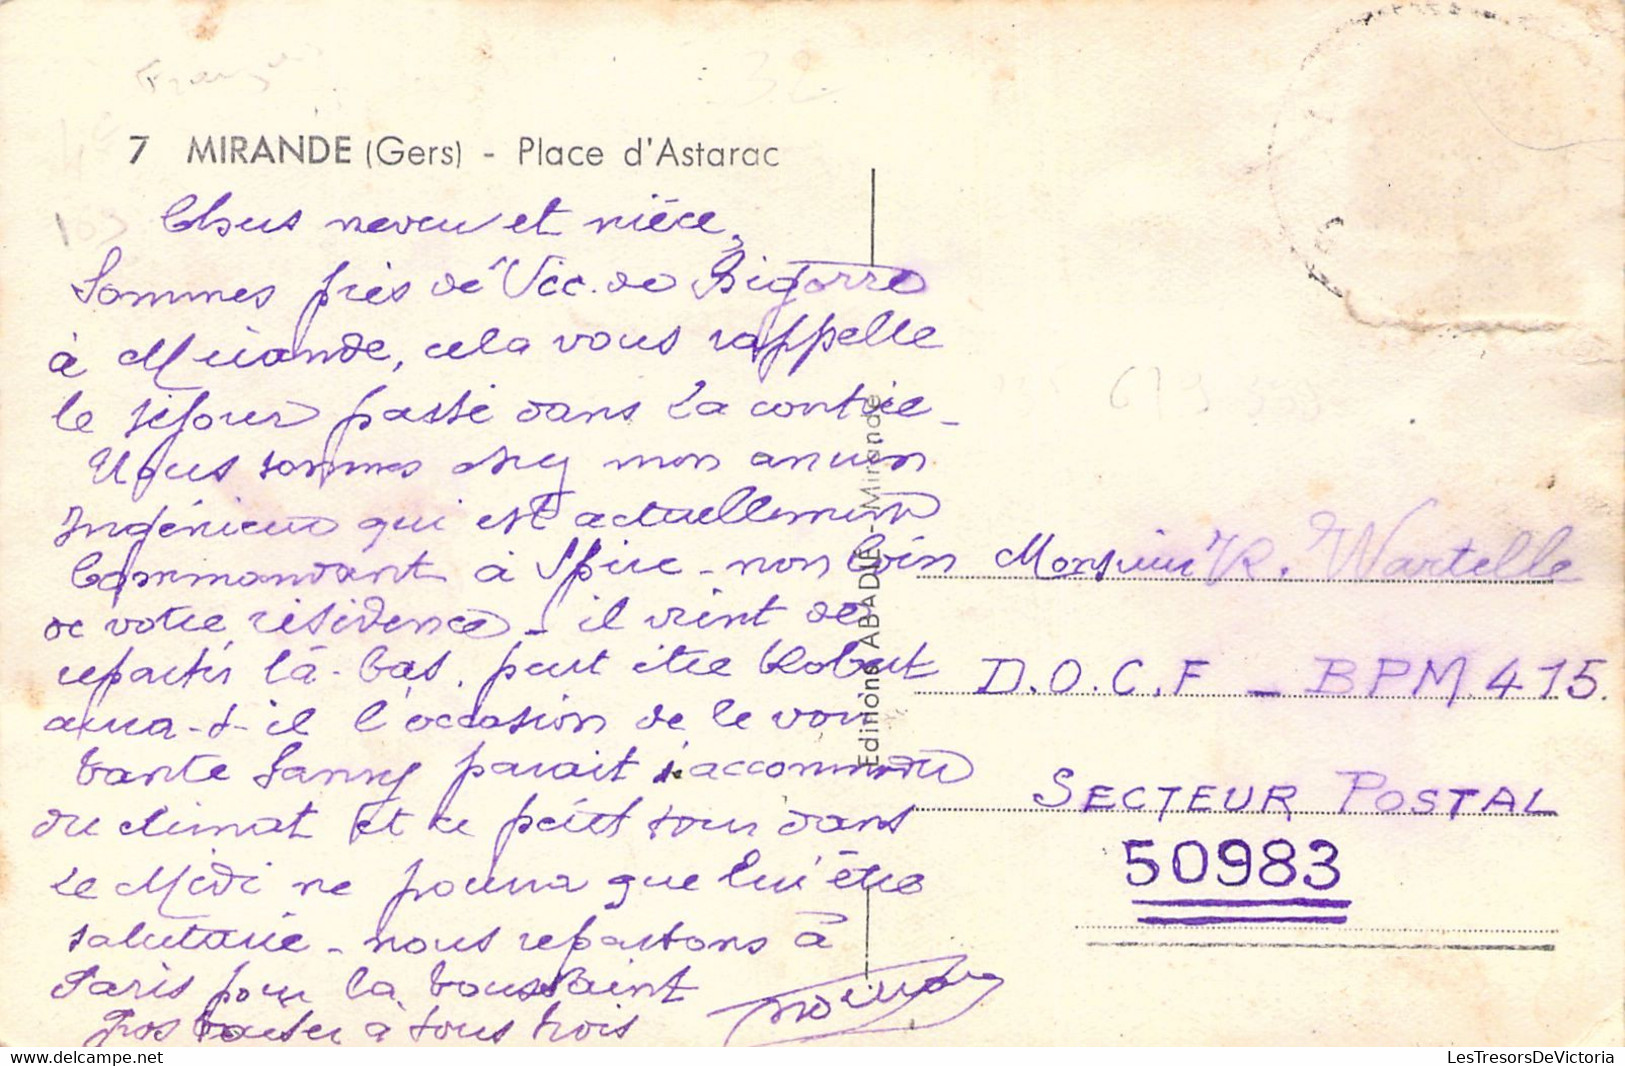 7 MIRANDE (Gers) - Place d'Astarac
Chers neveu et nièce,
Sommes près de Vic. de Bigorre
à Mirande, cela vous rappelle
le séjour passé dans la contrée -
Nous sommes chez mon ancien
Ingénieur qui est actuellement
Commandant à Spire - non loin
de votre résidence - il vient de
repartir là-bas, peut être Robert
aura-t-il l'occasion de le voir
tante Fanny parait s'accommoder
du climat et ce petit tour dans
le Midi ne pourra que lui être
salutaire - nous repartons à
Paris pour la Toussaint
Gros baiser à tous trois
Editions ABADIE - Mirande
Monsieur R. Wartelle
D.O.C.F - BPM 415.
SECTEUR POSTAL
50983
delcampe.net
LesTresorsDeVictoria